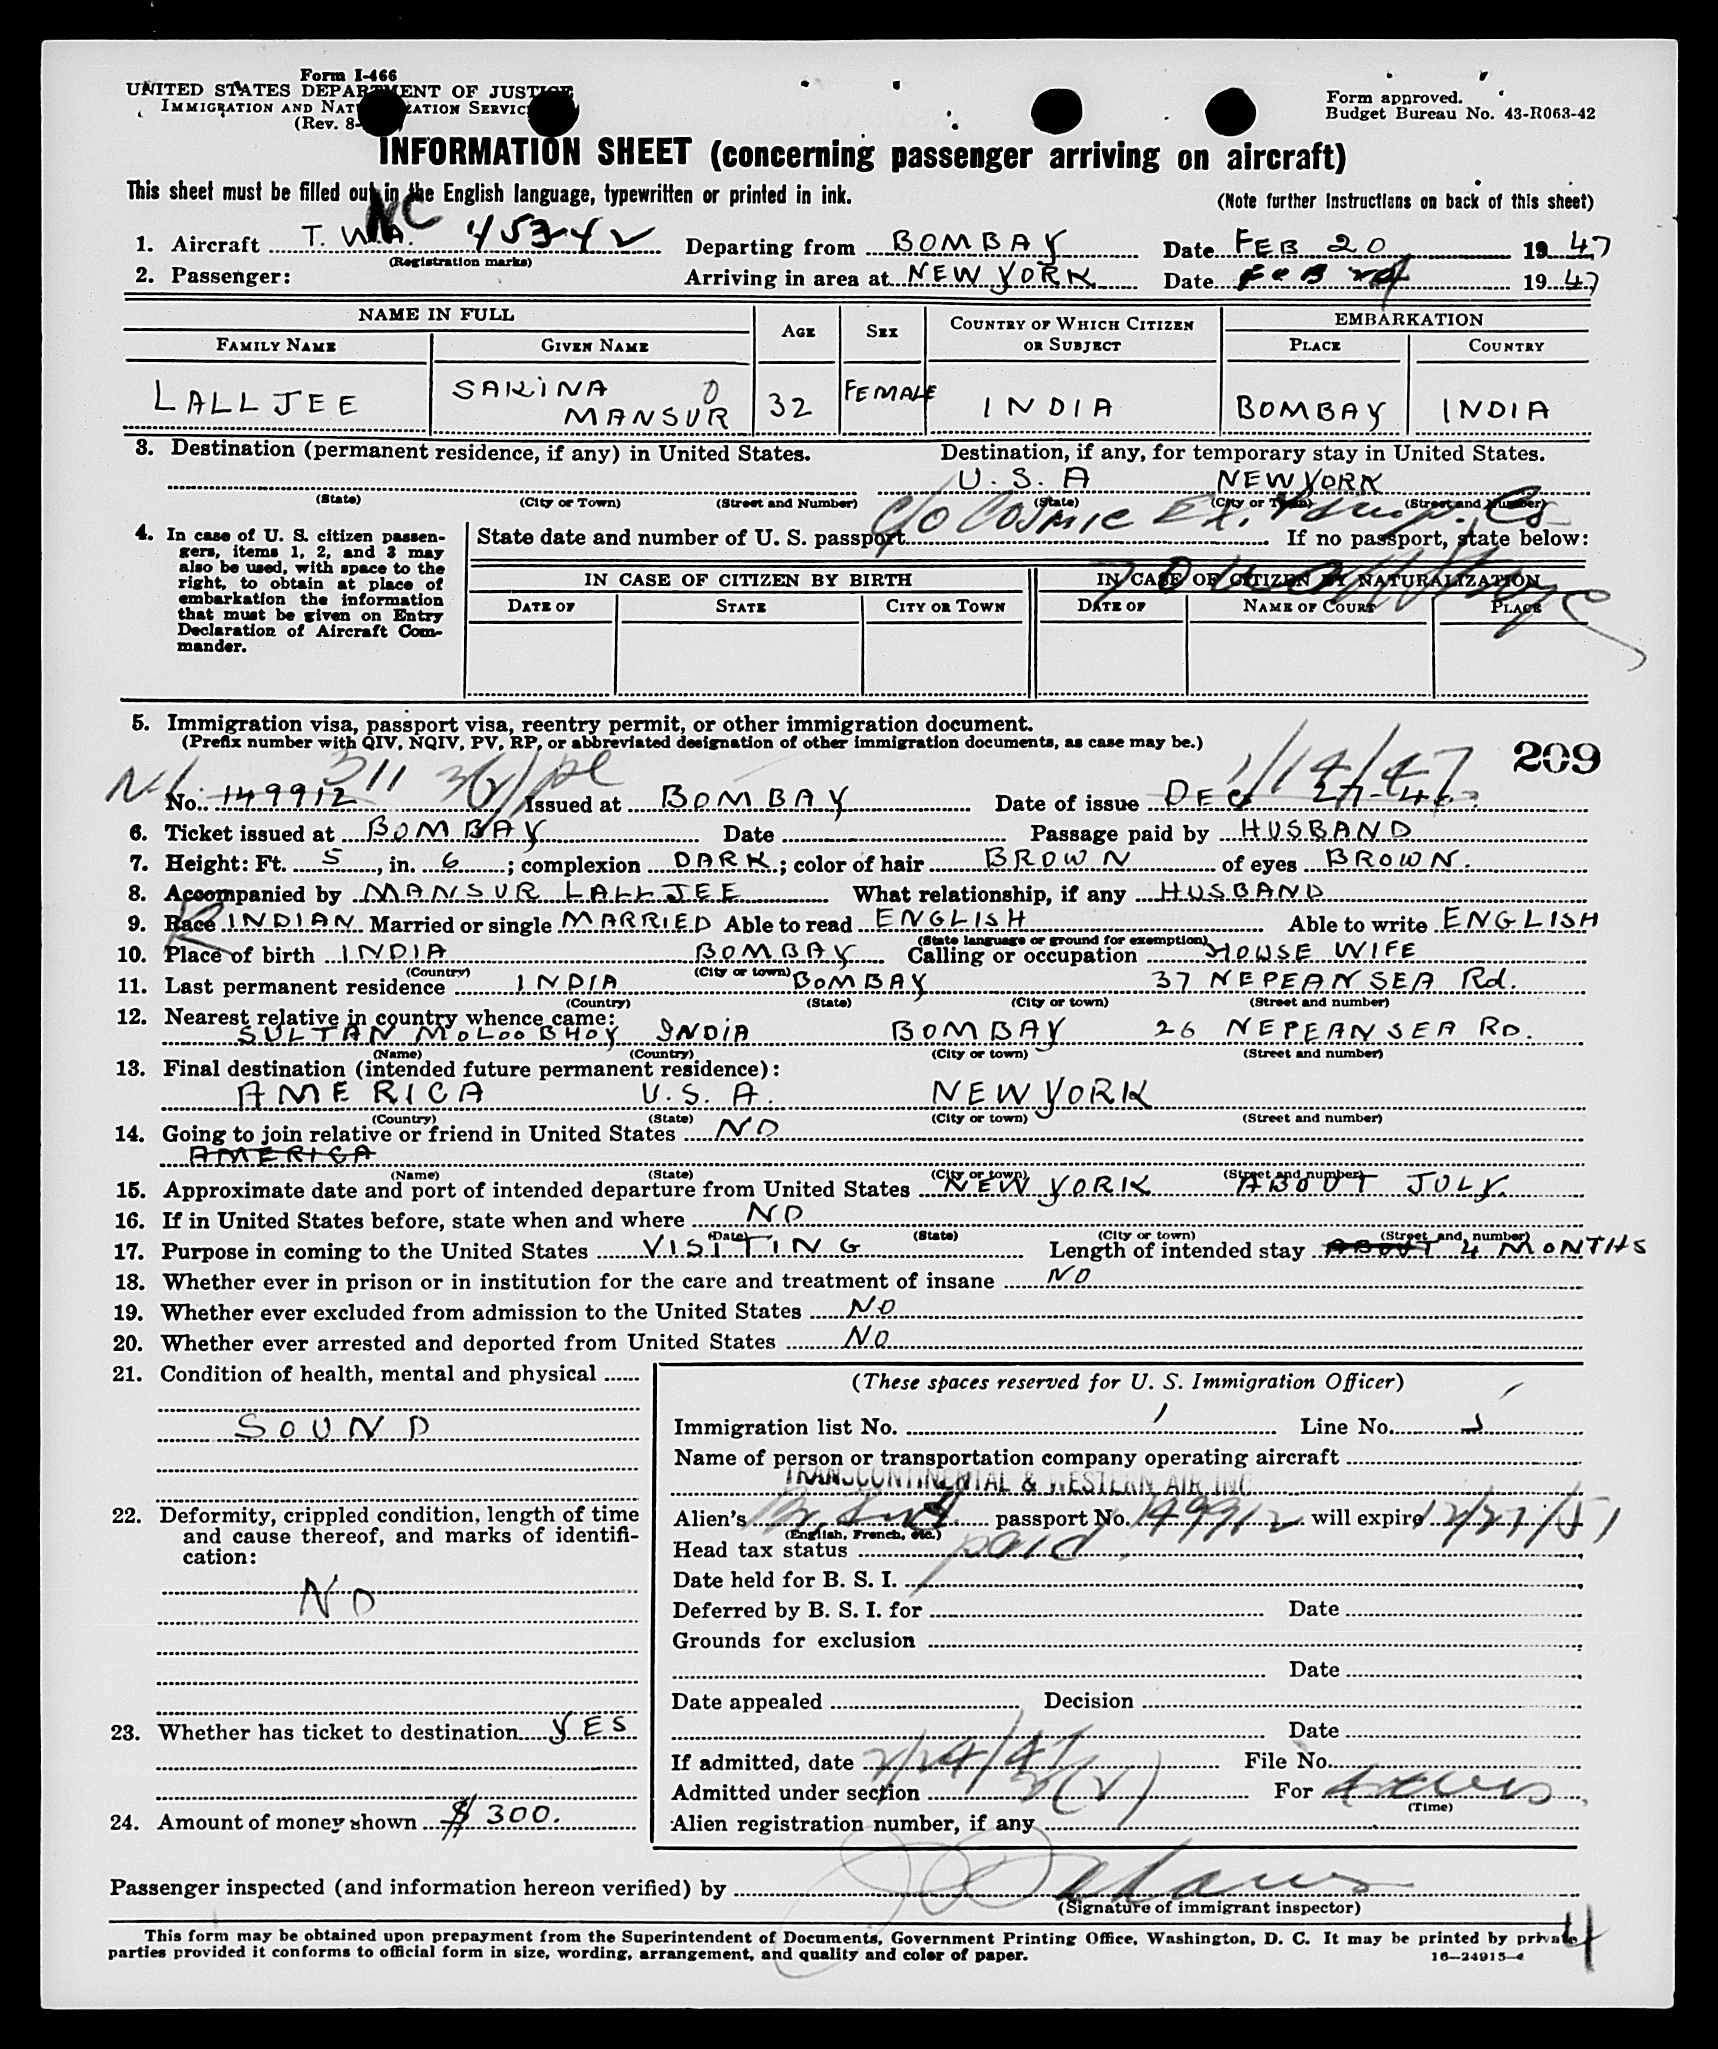 Form I-466
UNITED STATES DEPARTMENT OF JUSTICE
IMMIGRATION AND NATURALIZATION SERVICE
(Rev. 8-
Form approved.
Budget Bureau No. 43-R063-42
INFORMATION SHEET (concerning passenger arriving on aircraft)
This sheet must be filled out in the English language, typewritten or printed in ink.
(Note further instructions on back of this sheet)
1. Aircraft T. W.A. NC 45342 Departing from BOMBAY Date FEB 20 1947
(Registration marks)
2. Passenger: Arriving in area at NEW YORK Date FEB 24 1947
NAME IN FULL AGE SEX COUNTRY OF WHICH CITIZEN OR SUBJECT EMBARKATION
FAMILY NAME GIVEN NAME PLACE COUNTRY
LALLJEE SAKINA MANSUR 0 32 FEMALE INDIA BOMBAY INDIA
3. Destination (permanent residence, if any) in United States. Destination, if any, for temporary stay in United States.
U.S.A NEW YORK
(State) (City or Town) (Street and Number) (State) (City or Town) (Street and Number)
c/o Cosmic Ex. & Imp. Co
4. In case of U. S. citizen passengers, items 1, 2, and 3 may also be used, with space to the right, to obtain at place of embarkation the information that must be given on Entry Declaration of Aircraft Commander.
State date and number of U. S. passport If no passport, state below:
IN CASE OF CITIZEN BY BIRTH IN CASE OF CITIZEN BY NATURALIZATION
DATE OF STATE CITY OR TOWN DATE OF NAME OF COURT PLACE
5. Immigration visa, passport visa, reentry permit, or other immigration document.
(Prefix number with QIV, NQIV, PV, RP, or abbreviated designation of other immigration documents, as case may be.)
209
311 3(2) 1/14/47
No. 149912 Issued at BOMBAY Date of issue DEC 27-46
6. Ticket issued at BOMBAY Date Passage paid by HUSBAND
7. Height: Ft. 5, in. 6; complexion DARK; color of hair BROWN of eyes BROWN.
8. Accompanied by MANSUR LALLJEE What relationship, if any HUSBAND
9. Race INDIAN Married or single MARRIED Able to read ENGLISH Able to write ENGLISH
(State language or ground for exemption)
10. Place of birth INDIA BOMBAY Calling or occupation HOUSE WIFE
(Country) (City or town)
11. Last permanent residence INDIA BOMBAY 37 NEPEAN SEA Rd.
(Country) (State) (City or town) (Street and number)
12. Nearest relative in country whence came:
SULTAN MOLOOBHOY INDIA BOMBAY 26 NEPEAN SEA RD.
(Name) (Country) (City or town) (Street and number)
13. Final destination (intended future permanent residence):
AMERICA U.S.A. NEW YORK
(Country) (State) (City or town) (Street and number)
14. Going to join relative or friend in United States NO
AMERICA
(Name) (State) (City or town) (Street and number)
15. Approximate date and port of intended departure from United States NEW YORK ABOUT JULY.
16. If in United States before, state when and where NO
(Date) (State) (City or town) (Street and number)
17. Purpose in coming to the United States VISITING Length of intended stay ABOUT 4 MONTHS
18. Whether ever in prison or in institution for the care and treatment of insane NO
19. Whether ever excluded from admission to the United States NO
20. Whether ever arrested and deported from United States NO
21. Condition of health, mental and physical
SOUND
22. Deformity, crippled condition, length of time and cause thereof, and marks of identification:
NO
23. Whether has ticket to destination YES
24. Amount of money shown $300.
(These spaces reserved for U. S. Immigration Officer)
Immigration list No. 1 Line No.
Name of person or transportation company operating aircraft
TRANSCONTINENTAL & WESTERN AIR INC
Alien's passport No. 149912 will expire 12/27/51
(English, French, etc.)
Head tax status paid
Date held for B. S. I.
Deferred by B. S. I. for Date
Grounds for exclusion
Date
Date appealed Decision
Date
If admitted, date 2/24/47 File No.
Admitted under section 3(2) For
(Time)
Alien registration number, if any
Passenger inspected (and information hereon verified) by
(Signature of immigrant inspector)
This form may be obtained upon prepayment from the Superintendent of Documents, Government Printing Office, Washington, D. C. It may be printed by private
parties provided it conforms to official form in size, wording, arrangement, and quality and color of paper.
16—24915-
4